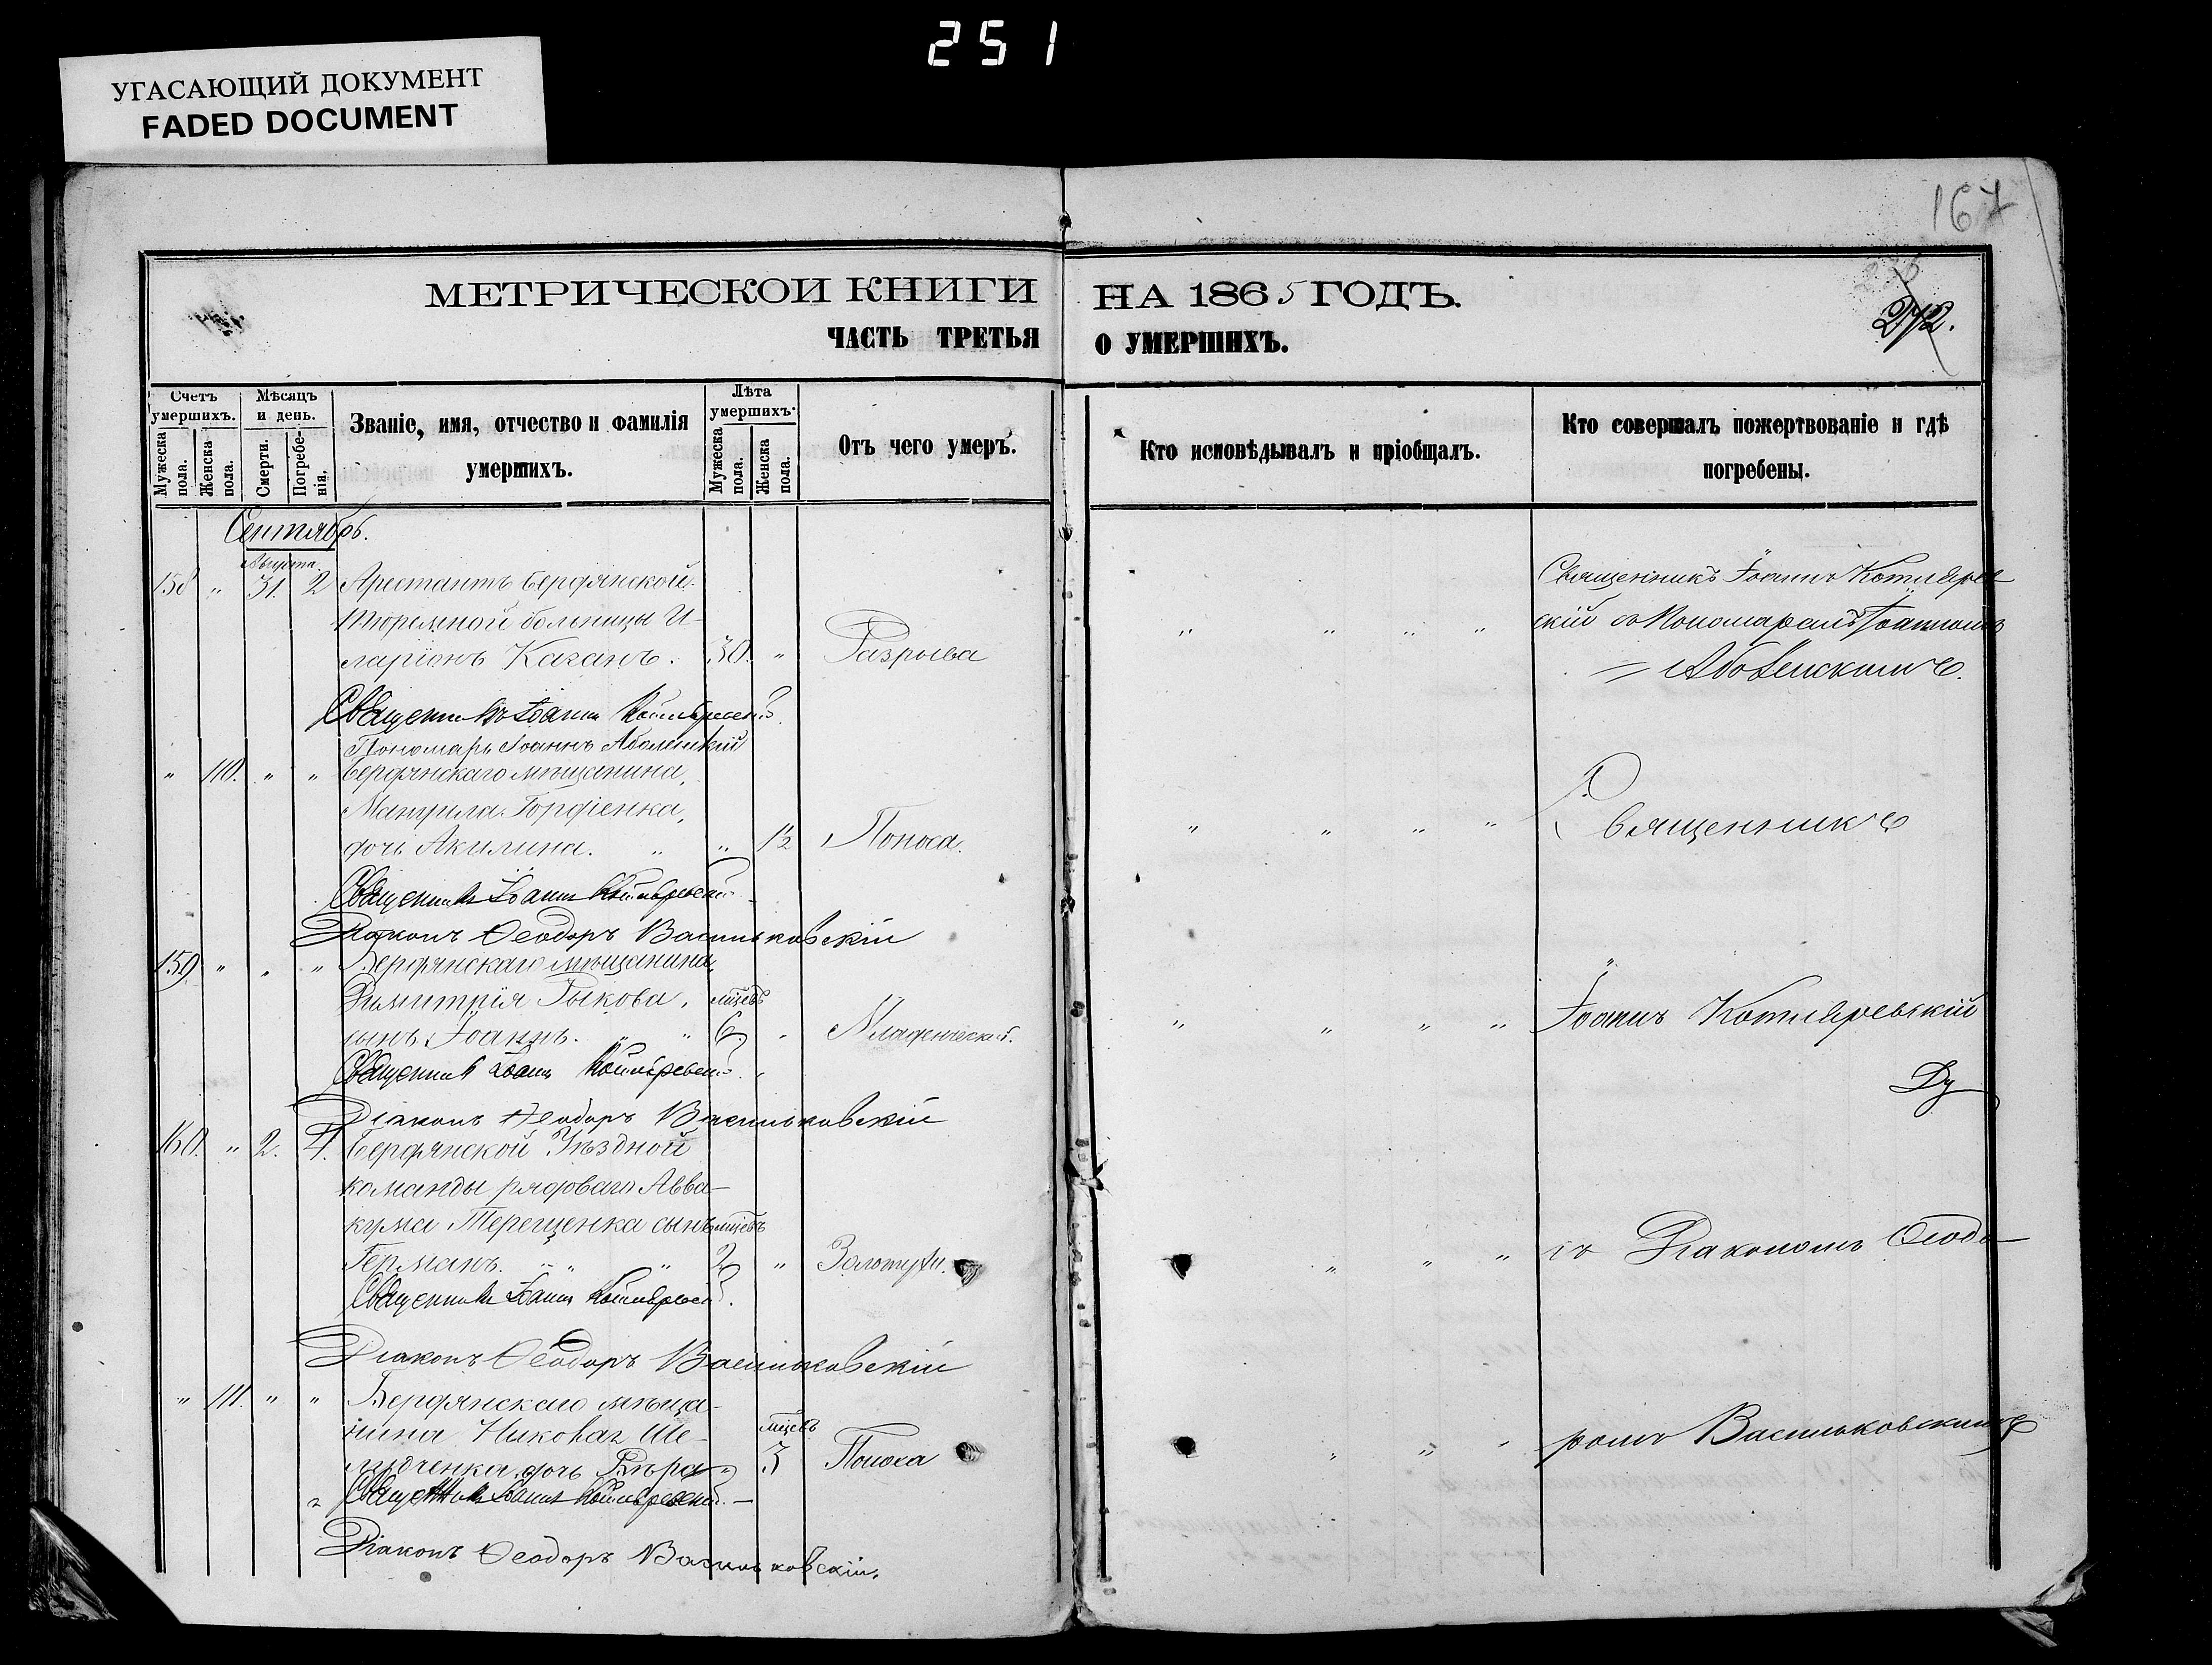 251
УГАСАЮЩИЙ ДОКУМЕНТ
FADED DOCUMENT
167
МЕТРИЧЕСКОЙ КНИГИ НА 1865 ГОДЪ.
ЧАСТЬ ТРЕТЬЯ О УМЕРШИХЪ.
272.
Счетъ умершихъ.
Мужеска пола.
Женска пола.
Мѣсяцъ и день.
Смерти.
Погребенія.
Званіе, имя, отчество и фамилія
умершихъ.
Лѣта умершихъ.
Мужеска пола.
Женска пола.
Отъ чего умеръ.
Кто исповѣдывалъ и пріобщалъ.
Кто совершалъ пожертвованіе и гдѣ
погребены.
Сентябрь.
Августа
158 " 31. 2 Арестантъ Бердянской Священникъ Іоаннъ Котлярев
тюремной больницы И- скій съ Пономаремъ Іоанномъ
ларіонъ Каганъ. 30. " Разрыва
Священникъ Іоаннъ Котляревскій.
Пономарь Іоаннъ
" 110. " " Бердянскаго мѣщанина,
Гордіенка,
дочь Акилина. " " 1½ Поноса. Священникъ
Священникъ Іоаннъ Котляревскій
Діаконъ Ѳеодоръ Васильковскій
159. " " " Бердянскаго мѣщанина,
Димитрія Рыкова, мцевъ
сынъ Іоаннъ. " " 6. " Младенческой. Іоаннъ Котляревскій
Священникъ Іоаннъ Котляревскій.
Діаконъ Ѳеодоръ Васильковскій
160. " 2. 4. Бердянской Уѣздной
команды рядоваго Авва-
кума Терещенка сынъ мцевъ
Германъ. " " " 2. " Золотухи. съ Діакономъ Ѳеодо-
Священникъ Іоаннъ Котляревскій.
Діаконъ Ѳеодоръ Васильковскій
" 111. " " Бердянскаго мѣща-
нина Ше- мцевъ
дочь Вѣра " 3 Поноса ромъ Васильковскимъ
Священникъ Іоаннъ Котляревскій.
Діаконъ Ѳеодоръ Васильковскій.